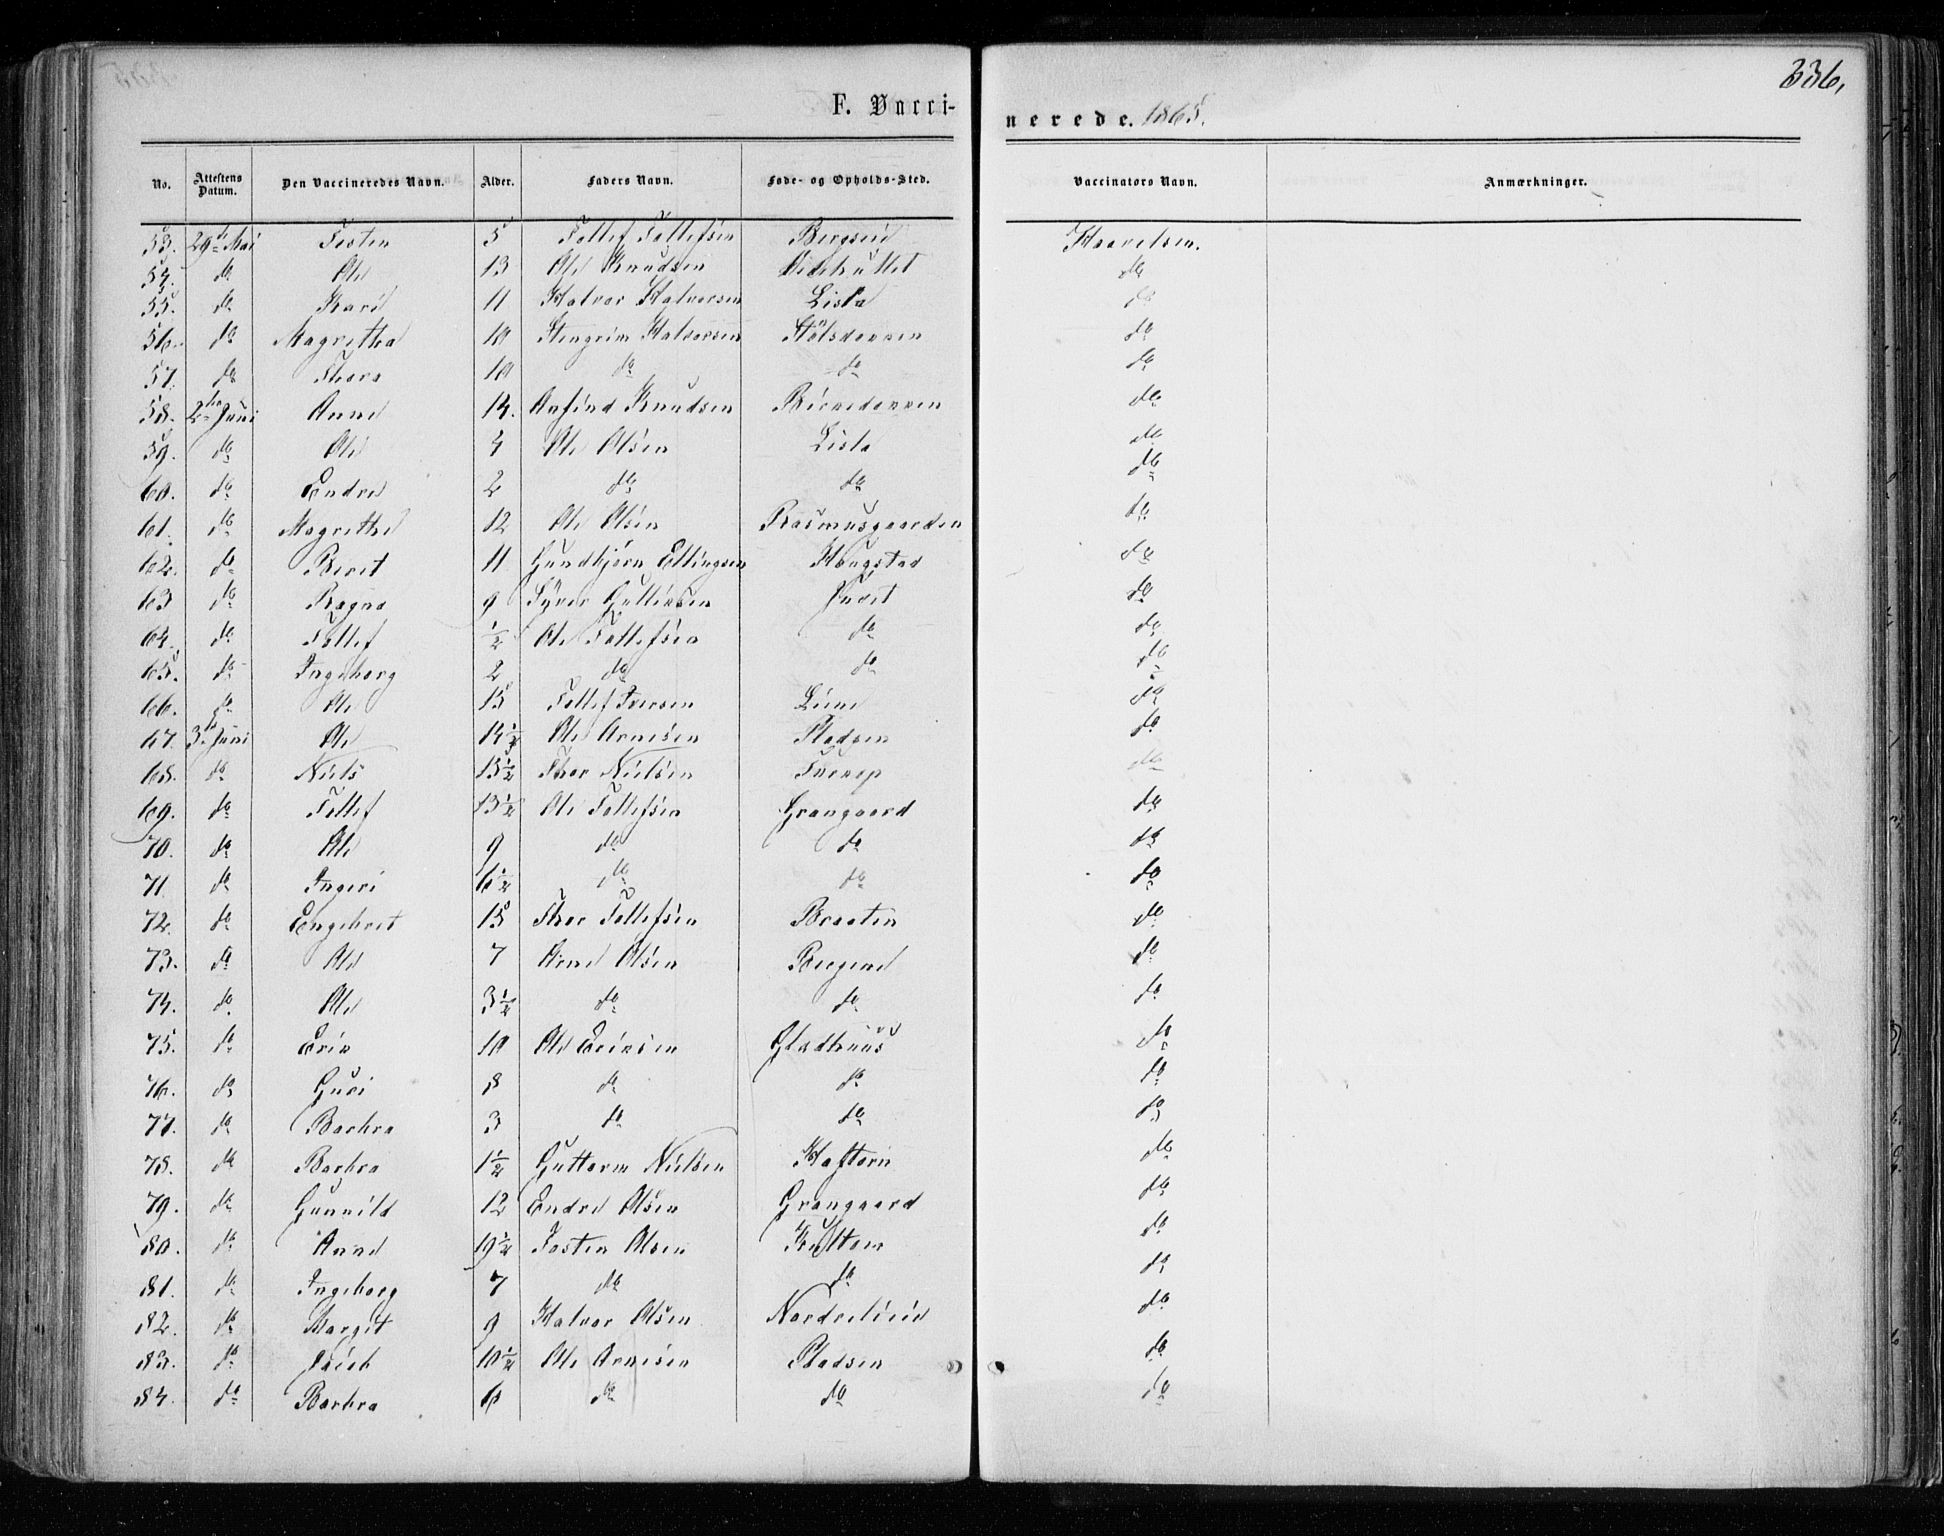 336,
F. Vacci-
nerede. 1865.
No. Attestens Datum. Den Vaccineredes Navn. Alder. Faders Navn. Føde- og Opholds-Sted. Vaccinators Navn. Anmærkninger.
53. 29de Mai Tosten 5 Tollef Tollefsen Bergseid Haavelsen.
54. do Ole 13 Ole Knudsen do
55. do Kari 11 Halvor Halvorsen Lista do
56. do Magretha 10 Stengrim Halvorsen do
57. do Thora 10 do do do
58. 2den Juni Anne 14. Anfind Knudsen do
59. do Ole 4 Ole Olsen Lista do
60. do Endre 2 do do do
61. do Magrethe 12 Ole Olsen Rasmusgaarden do
62. do Berit 11 Gundbjørn Ellingsen Haugstad do
63 do Ragna 9 Syver do
64. do Tollef ½ Ole Tollefsen do do
65. do Ingeborg 2 do do do
66. do Ole 15 Tollef Iversen do
67. 3de Juni Ole 14½ Ole Arnesen Pladsen do
68. do Niels 13½ Thor Nielsen do
69. do Tollef 13½ Ole Tollefsen Grangaard do
70. do Ole 9 do do do
71. do Ingeri 6½ do do do
72. do Engebret 15 Thor Tollefsen Braaten do
73. do Ole 7 Arne Olsen do
74. do Ole 3½ do do do
75. do Erik 10 Ole Eriksen Gladhuus do
76. do Guri 8 do do do
77. do Barbra 3 do do do
78. do Barbra 1½ Guttorm Nielsen Haftorn do
79. do Gunnild 12 Endre Olsen Grangaard do
80. do Anne 19½ Tosten Olsen do
81. do Ingeborg 7 do do do
82. do Margit 9 Halvor Olsen do
83. do 10½ Ole Arnesen Pladsen do
84. do Barbra 6 do do do